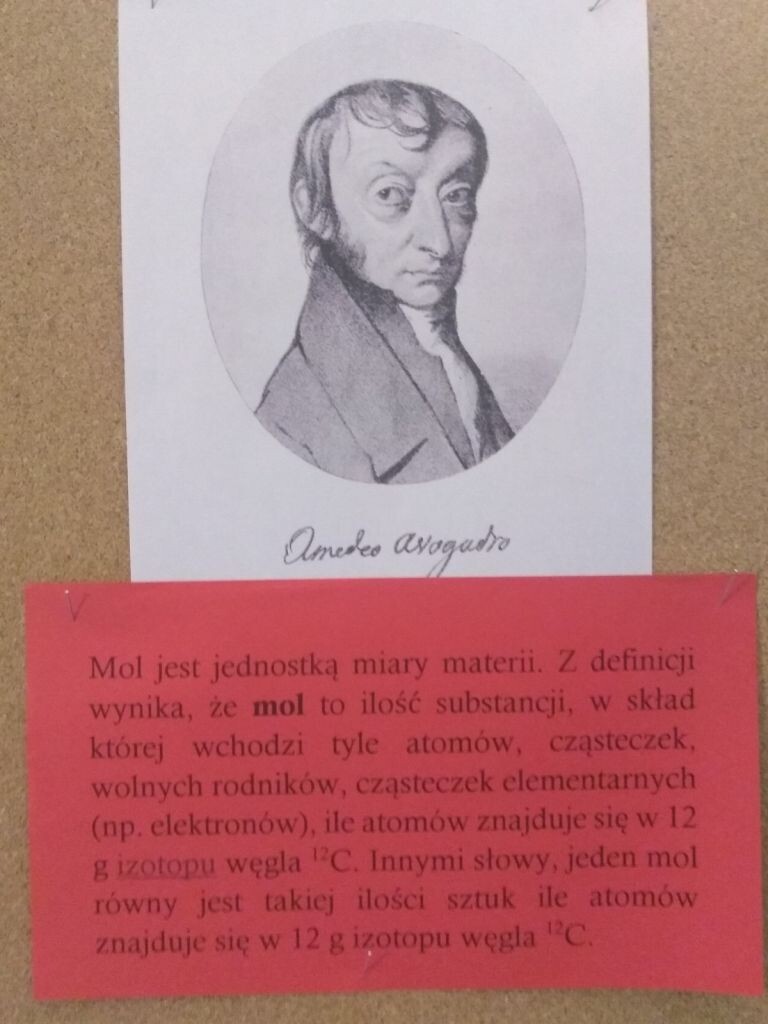 Amedeo Avogadro
Mol jest jednostką miary materii. Z definicji
wynika, że mol to ilość substancji, w skład
której wchodzi tyle atomów, cząsteczek,
wolnych rodników, cząsteczek elementarnych
(np. elektronów), ile atomów znajduje się w 12
g izotopu węgla ¹²C. Innymi słowy, jeden mol
równy jest takiej ilości sztuk ile atomów
znajduje się w 12 g izotopu węgla ¹²C.